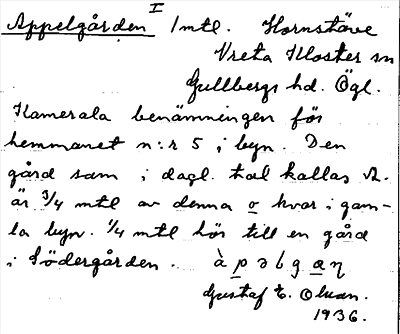 Appelgården I 1 mtl. Hornstäve
Vreta Kloster sn
Gullbergs hd. Ögl.
Kamerala benämningen för
hemmanet n:r 5 i byn. Den
gård som i dagl. tal kallas A.
är 3/4 mtl av denna o kvar i gam-
la byn. 1/4 mtl hör till en gård
i Södergården. à p ə l g a ŋ
Gustaf E. Olsson.
1936.